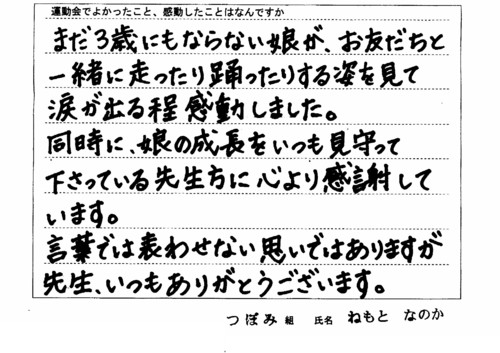 運動会でよかったこと、感動したことはなんですか
まだ3歳にもならない娘が、お友だちと
一緒に走ったり踊ったりする姿を見て
涙が出る程感動しました。
同時に、娘の成長をいつも見守って
下さっている先生方に心より感謝して
います。
言葉では表わせない思いではありますが
先生、いつもありがとうございます。
つぼみ組 氏名 ねもと なのか